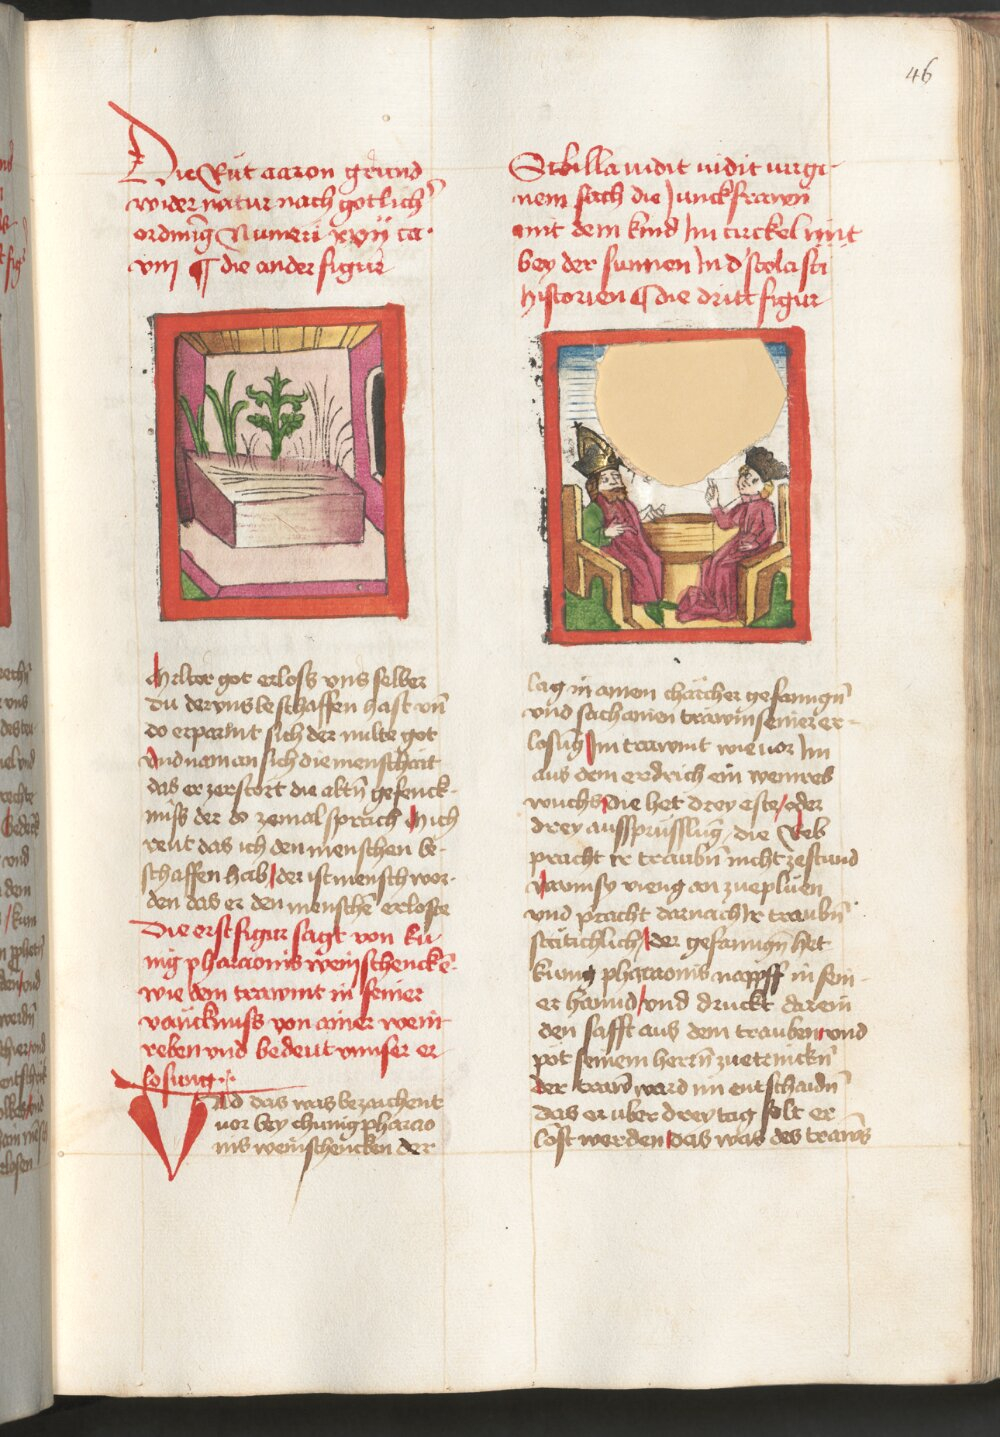 46
Die Rut aaron grund
wider natur nach gotlich
ordnug Numeri xvij ca
viij ¶ die ander figur
Sibilla vidit vidit virgi
nem sach die Junckfrawn
mit dem kind Im circkel mit
bey der sunnen In d scolasti
historien ¶ die dritt figur
got erloss uns selber
du der uns beschaffen hast un
do erparmt sich der milte got
Und nam an sich die menschait
das er zerstort die altn gefenck
nuss der do zemal sprach Mich
reut das ich den menschen be
schaffen hab der ist mensch wor
den das er den mensche erloste
Die erst figur sagt von ku
nig pharaonis weinschencke
wie dem trawmt in seiner
vancknuss von ainer wein
reben und bedeut unser er
losung
Und das was bezaichent
vor bey chunig pharao
nis weinschencken der
lag in ainem chärcher gefanngn
und sach ainen trawm seiner er
losug Im trawmt wie vor Im
aus dem erdrich ein weinreb
wuchs die het drey este oder
drey ausspruslug die Reb
pracht ir traubn nicht zestund
vieng an zuepluen
und pracht darnach ir traubn
der gefanngn het
kunig pharaonis nappff in sein
er hannd und druckt darein
den safft aus dem trauben und
pot seinem herrn zuetrinckn
der trawm ward im entschaidn
das er uber drey tag solt er
lost werden das was des trawms